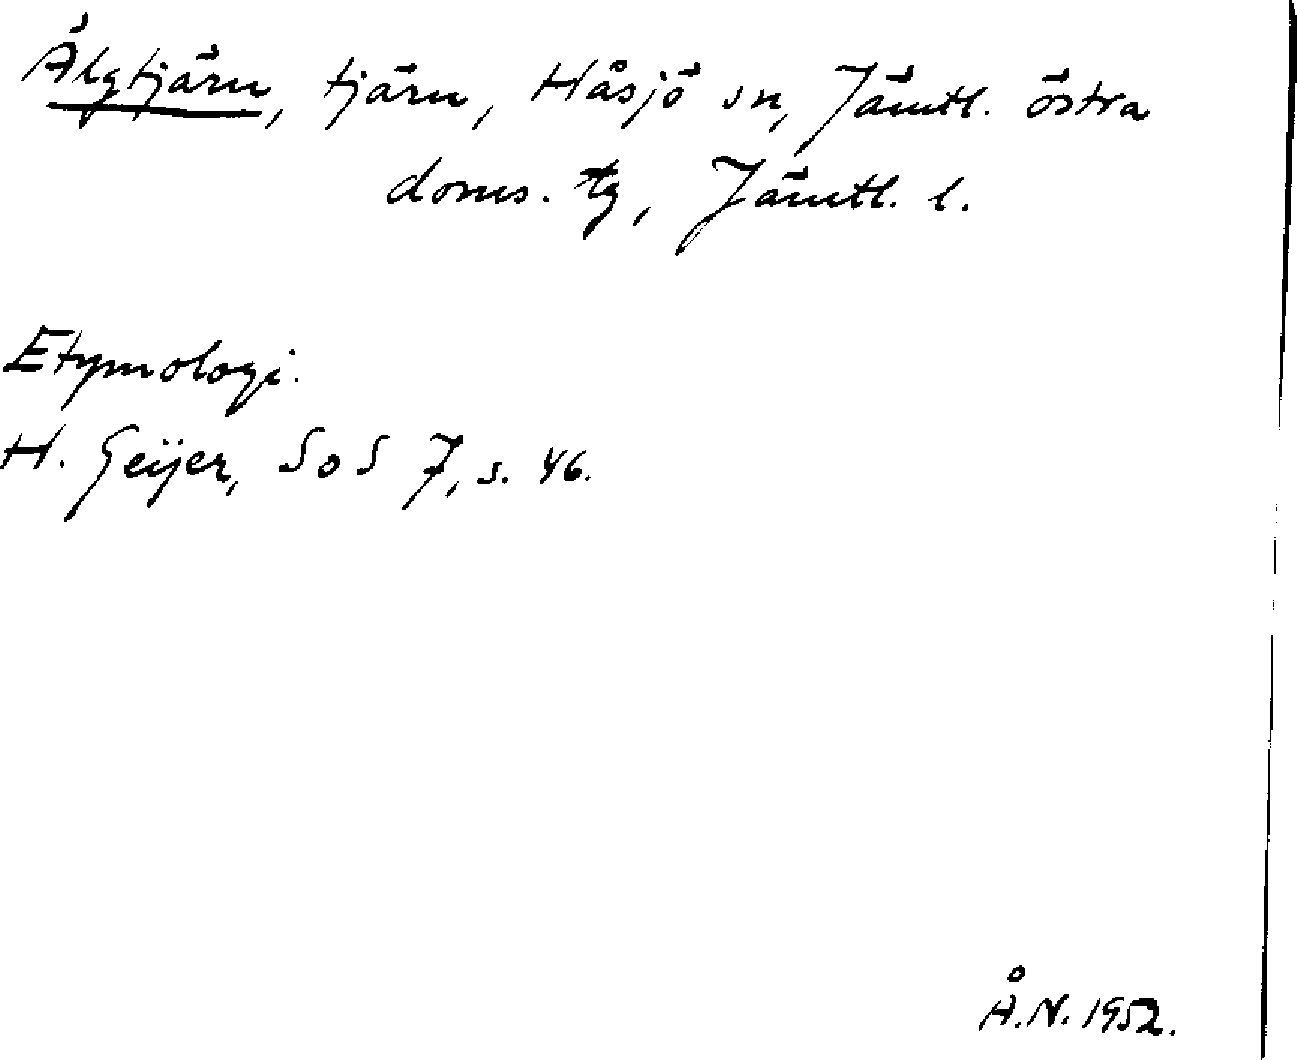 Älgtjärn, tjärn, Håsjö sn, Jämtl. östra
doms. tg, Jämtl. l.
Etymologi.
H. Geijer, SoS 7, s. 46.
Å.N. 1952.